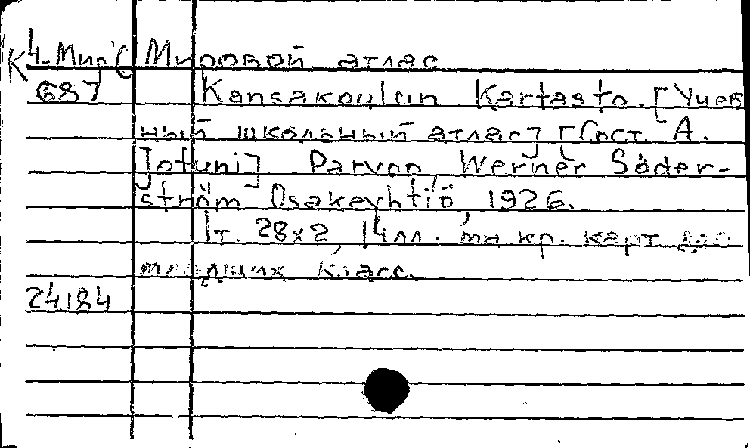 К 4-Мир'С Мировой атлас
687 Kansakoulun Kartasto. [Учеб
ный школьный атлас] [Сост. A.
Jotuni] Porvoo, Werner Söder-
ström Osakeyhtiö, 1926.
1т. 28х2, 14лл. мн кр. карт для
младших класс.
24184